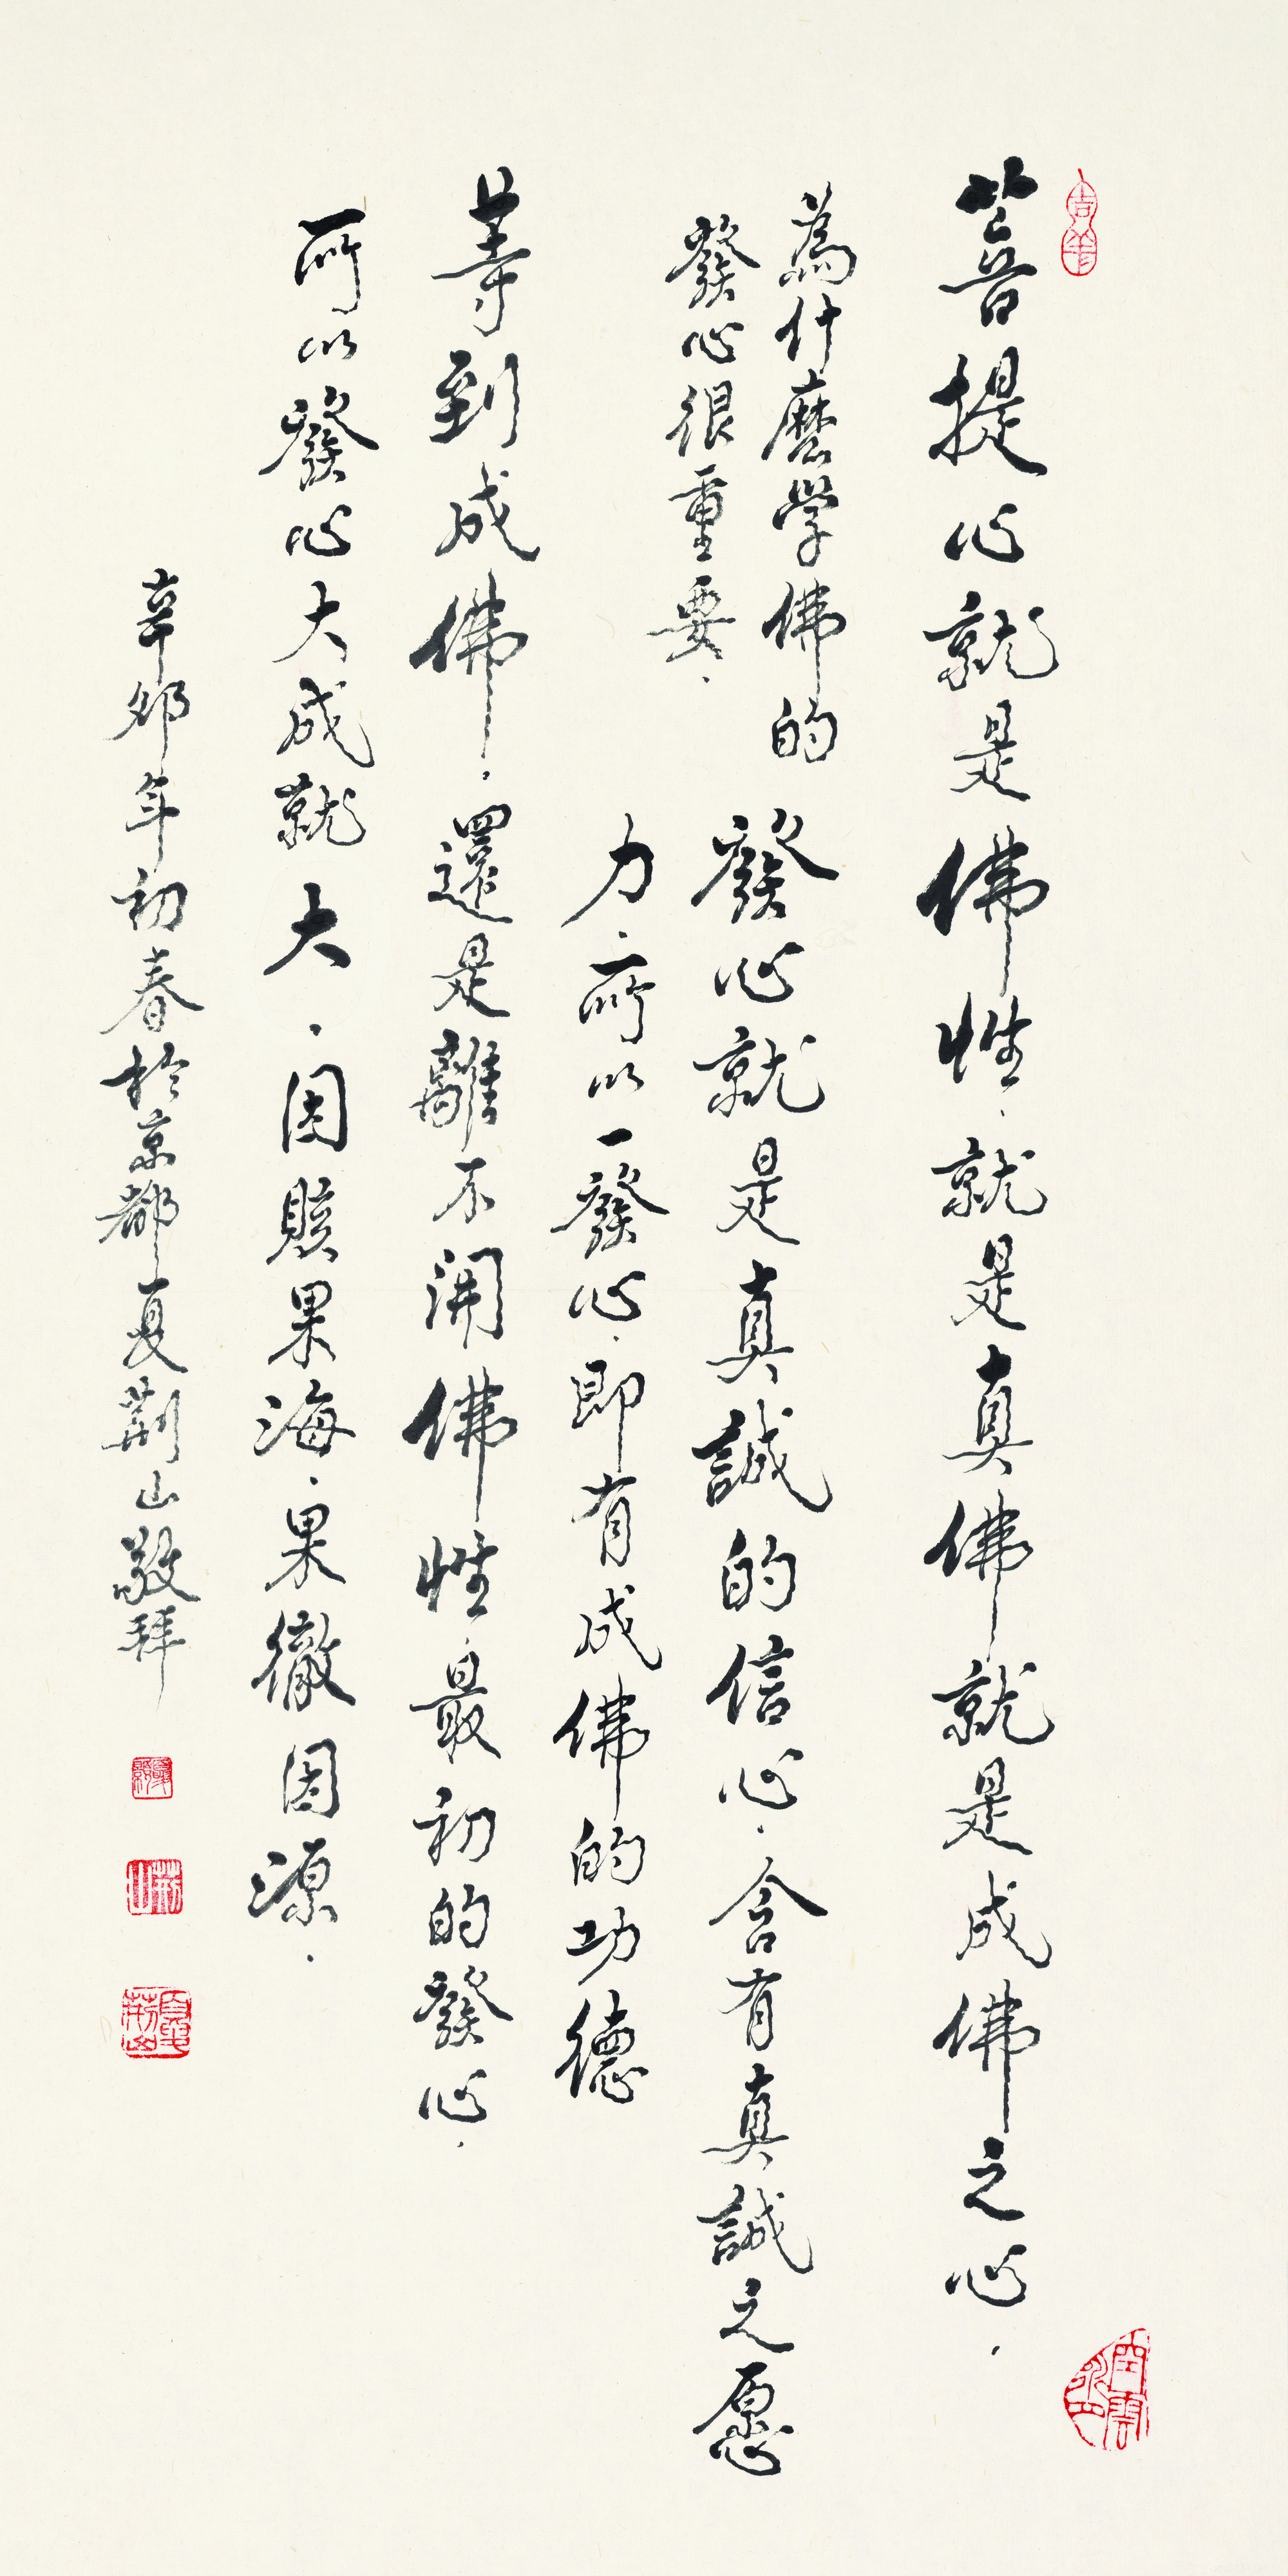 菩提心就是佛性．就是真佛就是成佛之心．
為什麼學佛的
發心很重要．
發心就是真誠的信心．含有真誠之愿
力．所以一發心．即有成佛的功德
等到成佛．還是離不開佛性．最初的發心．
所以發心大成就大．因賅果海．果徹因源．
辛卯年初春於京都夏荆山敬拜
吉羊
荆山
夏荆山